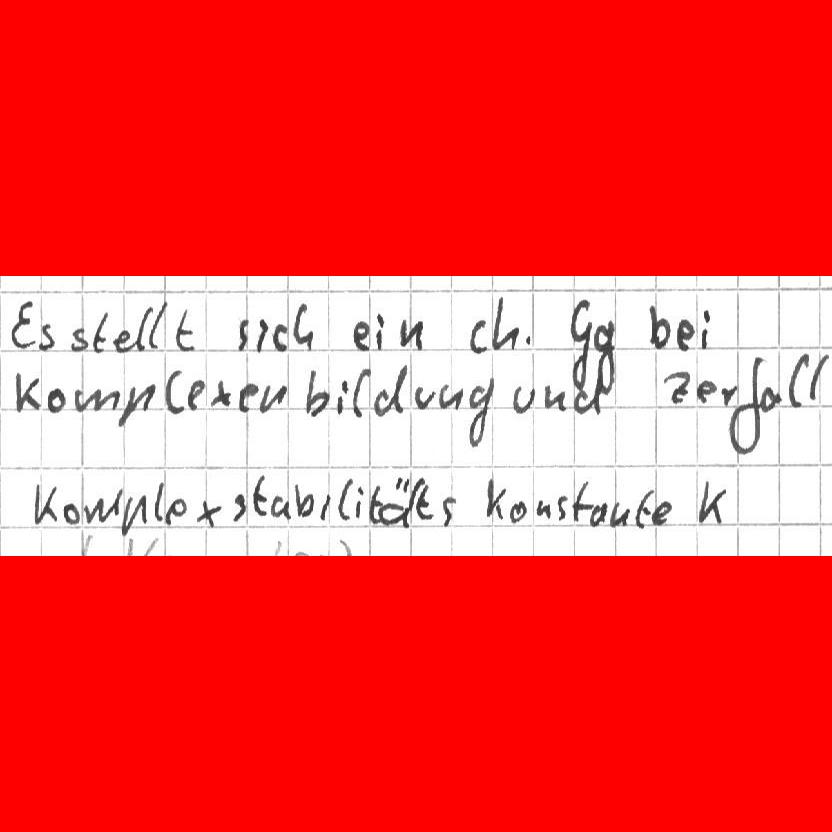 Es stellt sich ein ch. Gg bei
Komplexenbildung und Zerfall
Komplexstabilitäts konstante K